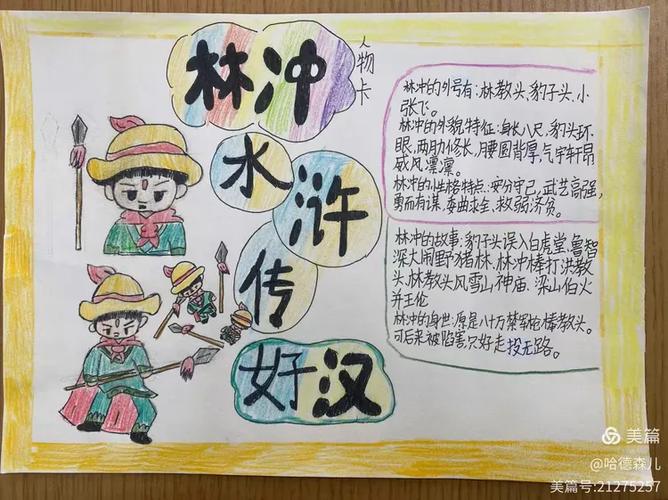 林冲
人物卡
水
浒
传
好汉
林冲的外号有:林教头、豹子头、小
张飞。
林冲的外貌特征:身长八尺,豹头环
眼,两肋修长,腰圆背厚,气宇轩昂
威风凛凛。
林冲的性格特点:安分守己,武艺高强,
勇而有谋,委曲求全,救弱济贫。
林冲的故事:豹子头误入白虎堂.鲁智
深大闹野猪林.林冲棒打洪教
头.林教头风雪山神庙.梁山伯火
并王伦
林冲的身世:原是八十万禁军枪棒教头。
可后来被陷害,只好走投无路。
美篇
@哈德森儿
美篇号:21275257